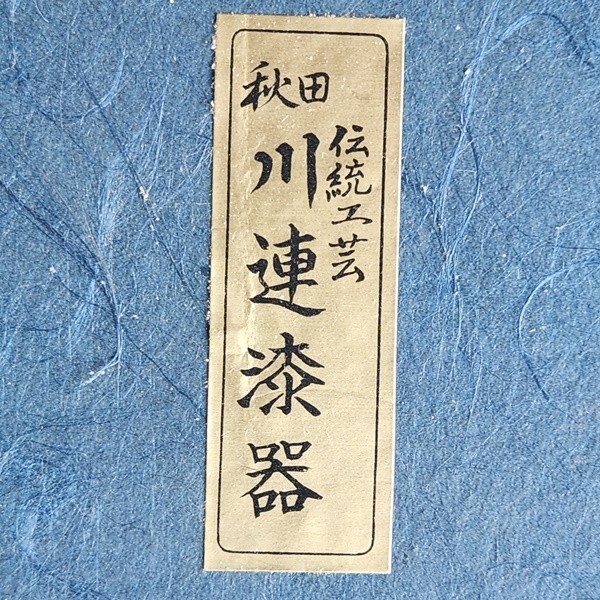 秋田
伝統工芸
川連漆器